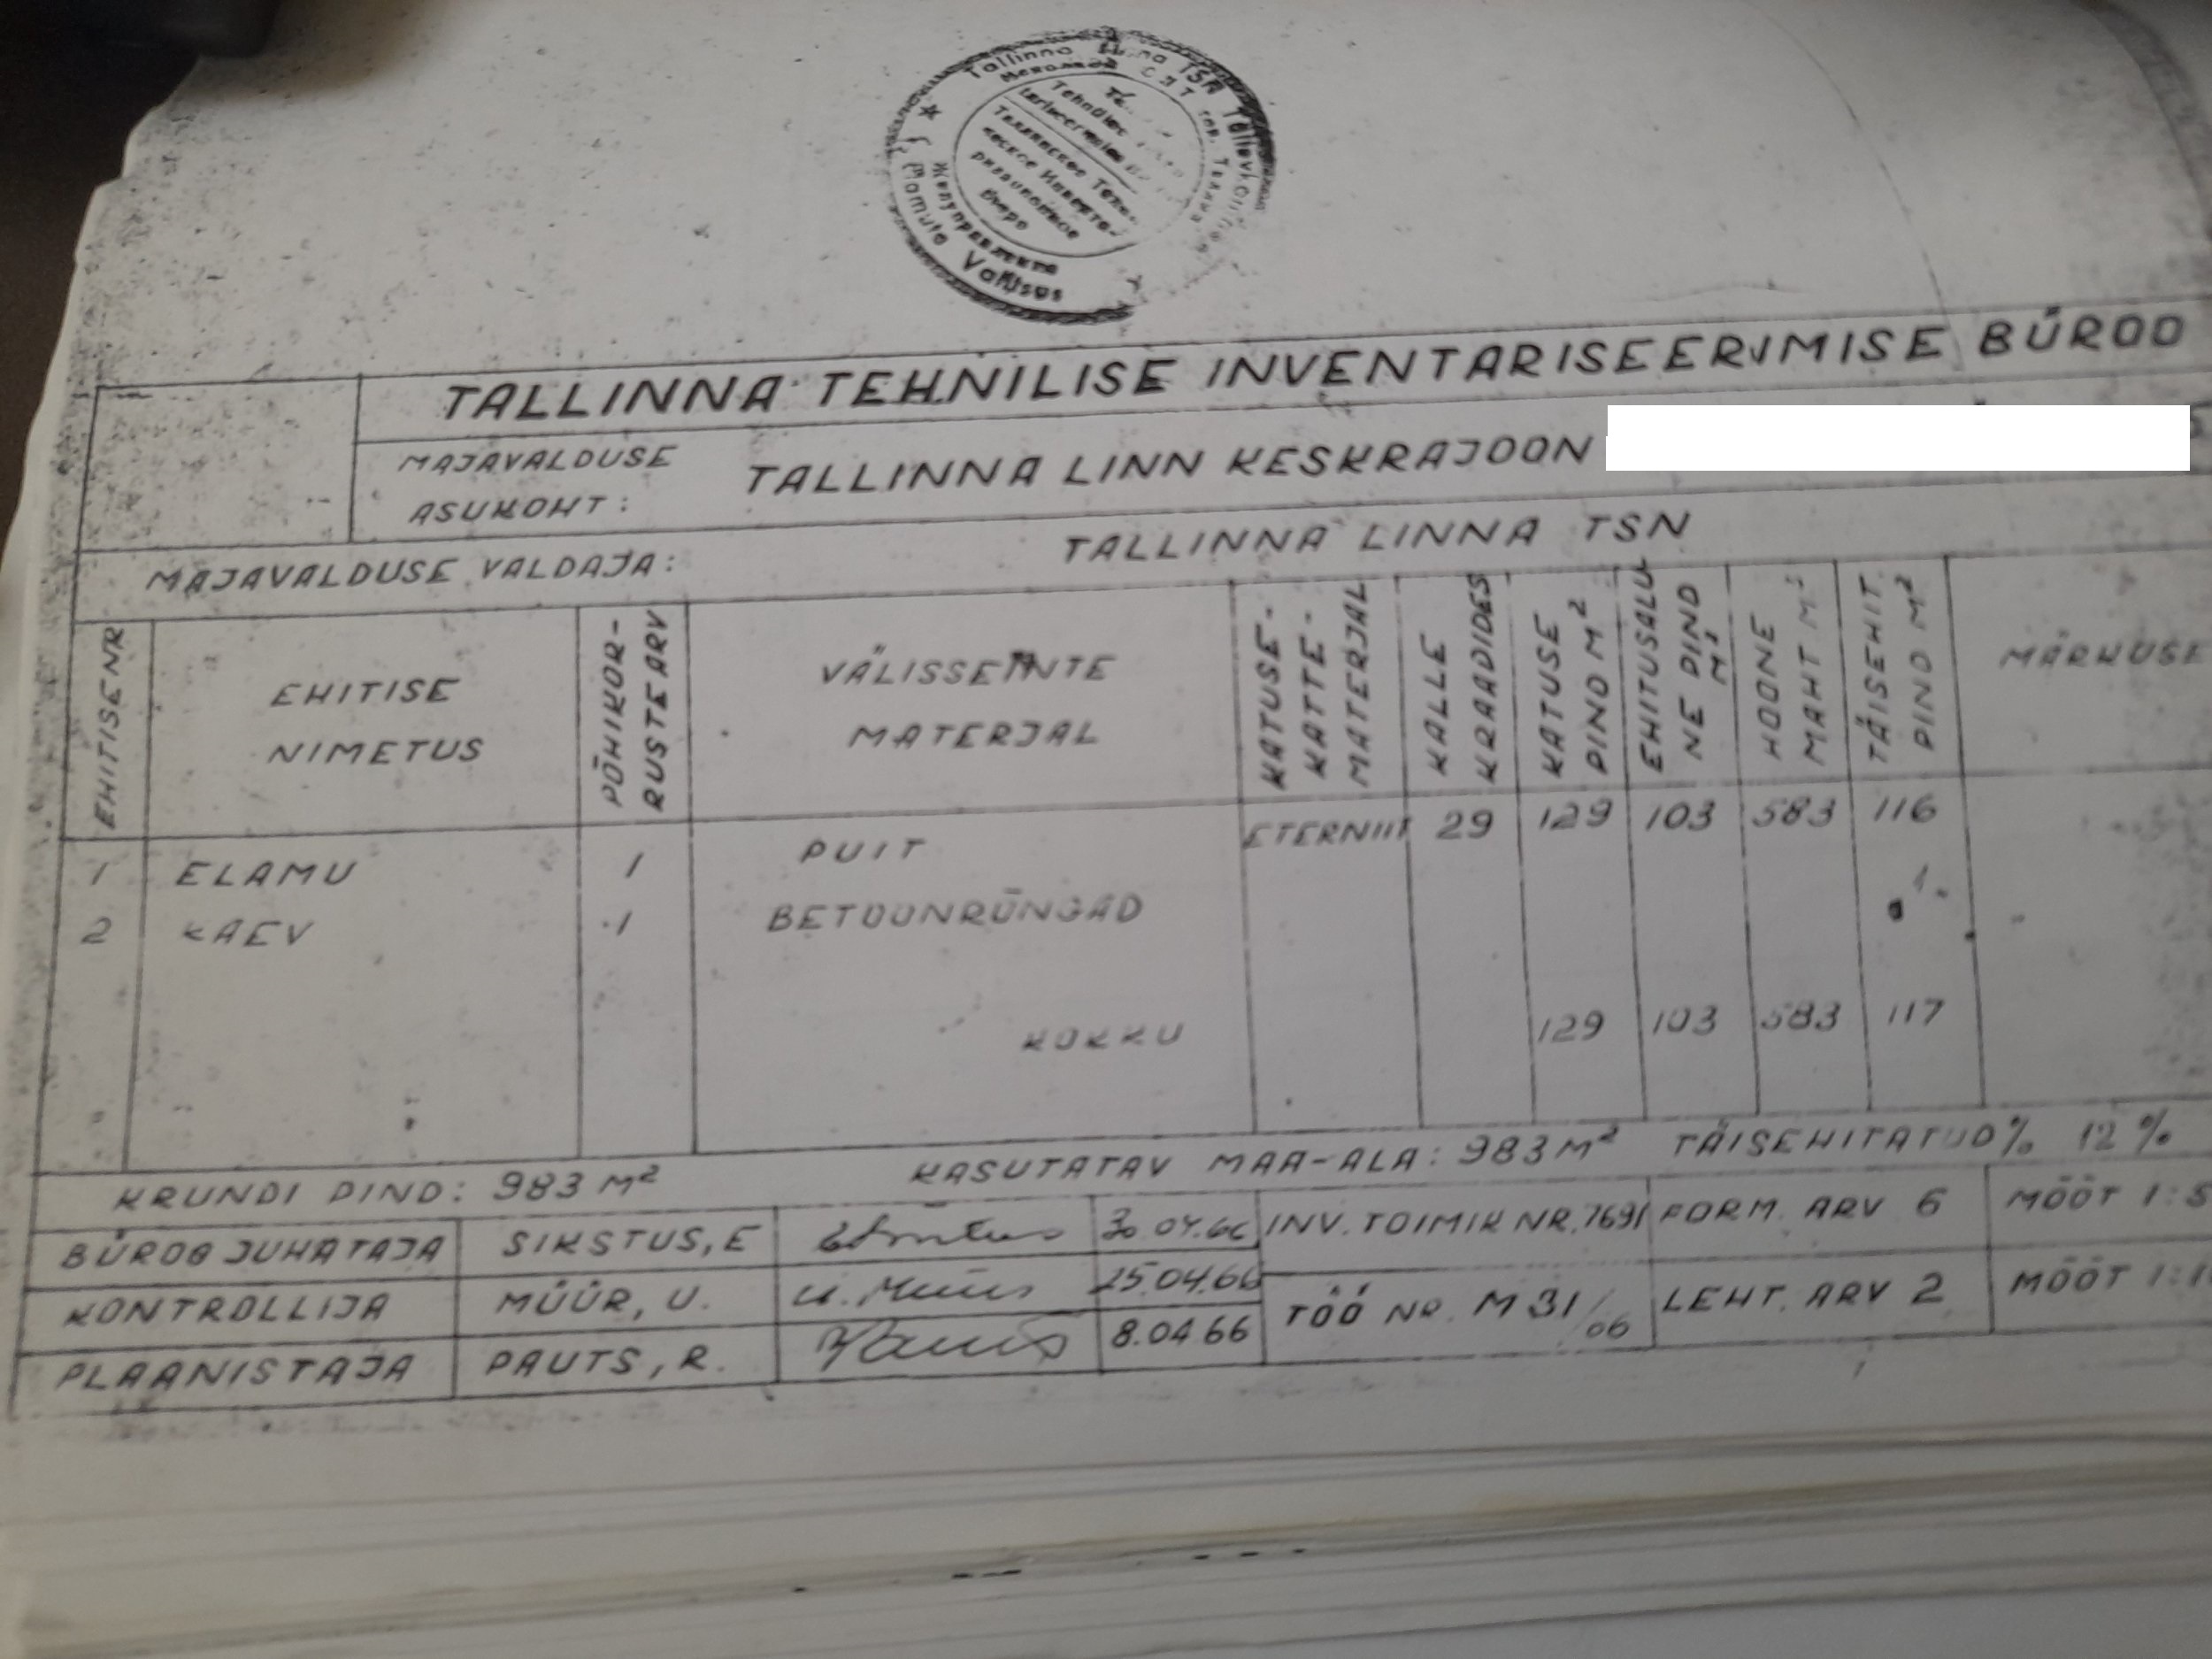 Tallinna
TSN
Elamute
Valitsus
Жилуправление
TALLINNA TEHNILISE INVENTARISEERIMISE BÜROO
MAJAVALDUSE
ASUKOHT:
TALLINNA LINN KESKRAJOON
MAJAVALDUSE VALDAJA:
TALLINNA LINNA TSN
EHITISE NR
EHITISE
NIMETUS
PÕHIKOR-
RUSTE ARV
VÄLISSEINTE
MATERJAL
KATUSE-
KATTE-
MATERJAL
KALLE
KRAADIDES
KATUSE
PIND M²
EHITUSALU
NE PIND
M²
HOONE
MAHT M³
TÄISEHIT.
PIND M²
MÄRKUSE
1 ELAMU 1 PUIT ETERNIIT 29 129 103 583 116
2 KAEV 1 BETOONRÕNGAD 1
KOKKU 129 103 583 117
KRUNDI PIND: 983 M² KASUTATAV MAA-ALA: 983 M² TÄISEHITATUD % 12 %
BÜROO JUHATAJA SIKSTUS, E 30.04.66 INV. TOIMIK NR. 7691 FORM. ARV 6 MÕÕT 1:5
KONTROLLIJA MÜÜR, U. U. Müür 25.04.66 TÖÖ NR. M 31/06 LEHT. ARV 2 MÕÕT 1:1
PLAANISTAJA PAUTS, R. 8.04 66